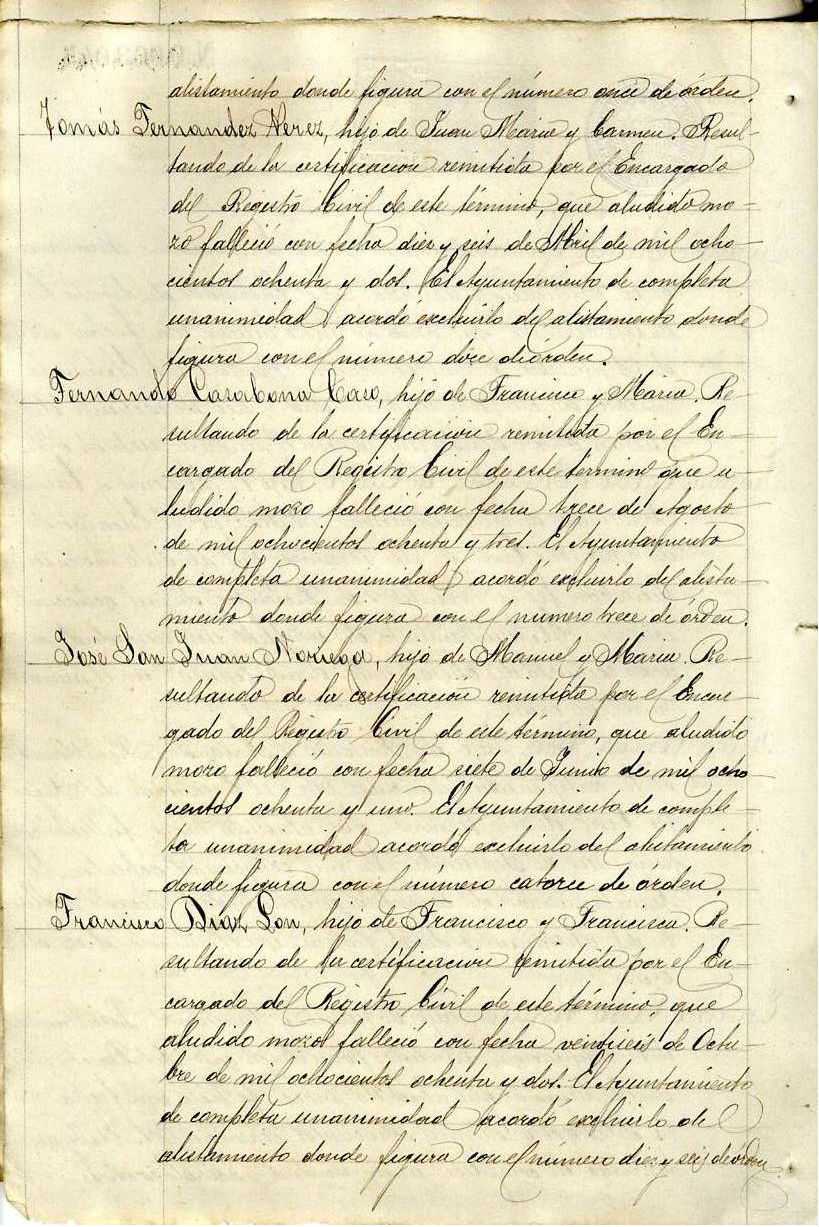 alistamiento donde figura con el número once de órden.
Tomás Fernandez Nerez, hijo de Juan Maria y Carmen. Resul-
tando de la certificacion remitida por el Encargado
del Registro Civil de este término, que aludido mo-
zo falleció con fecha diez y seis de Abril de mil ocho-
cientos ochenta y dos. El Ayuntamiento de completa
unanimidad acordó excluirlo del alistamiento donde
figura con el número doce de órden.
Fernando Casabona Caso, hijo de Francisco y Maria. Re-
sultando de la certificación remitida por el En-
cargado del Registro Civil de este termino que a-
ludido mozo falleció con fecha trece de Agosto
de mil ochocientos ochenta y tres. El Ayuntamiento
de completa unanimidad acordó excluirlo del alista-
miento donde figura con el numero trece de órden.
José San Juan Noriega, hijo de Manuel y Maria. Re-
sultando de la certificación remitida por el Encar-
gado del Registro Civil de este término, que aludido
mozo falleció con fecha siete de Junio de mil ocho-
cientos ochenta y uno. El Ayuntamiento de comple-
ta unanimidad acordó excluirlo del alistamiento
donde figura con el número catorce de órden.
Francisco Diaz Son, hijo de Francisco y Francisca. Re-
sultando de la certificacion remitida por el En-
cargado del Registro Civil de este término, que
aludido mozo falleció con fecha ventiseis de Octu-
bre de mil ochocientos ochenta y dos. El Ayuntamiento
de completa unanimidad acordó excluirlo del
alistamiento donde figura con el número diez y seis de orden